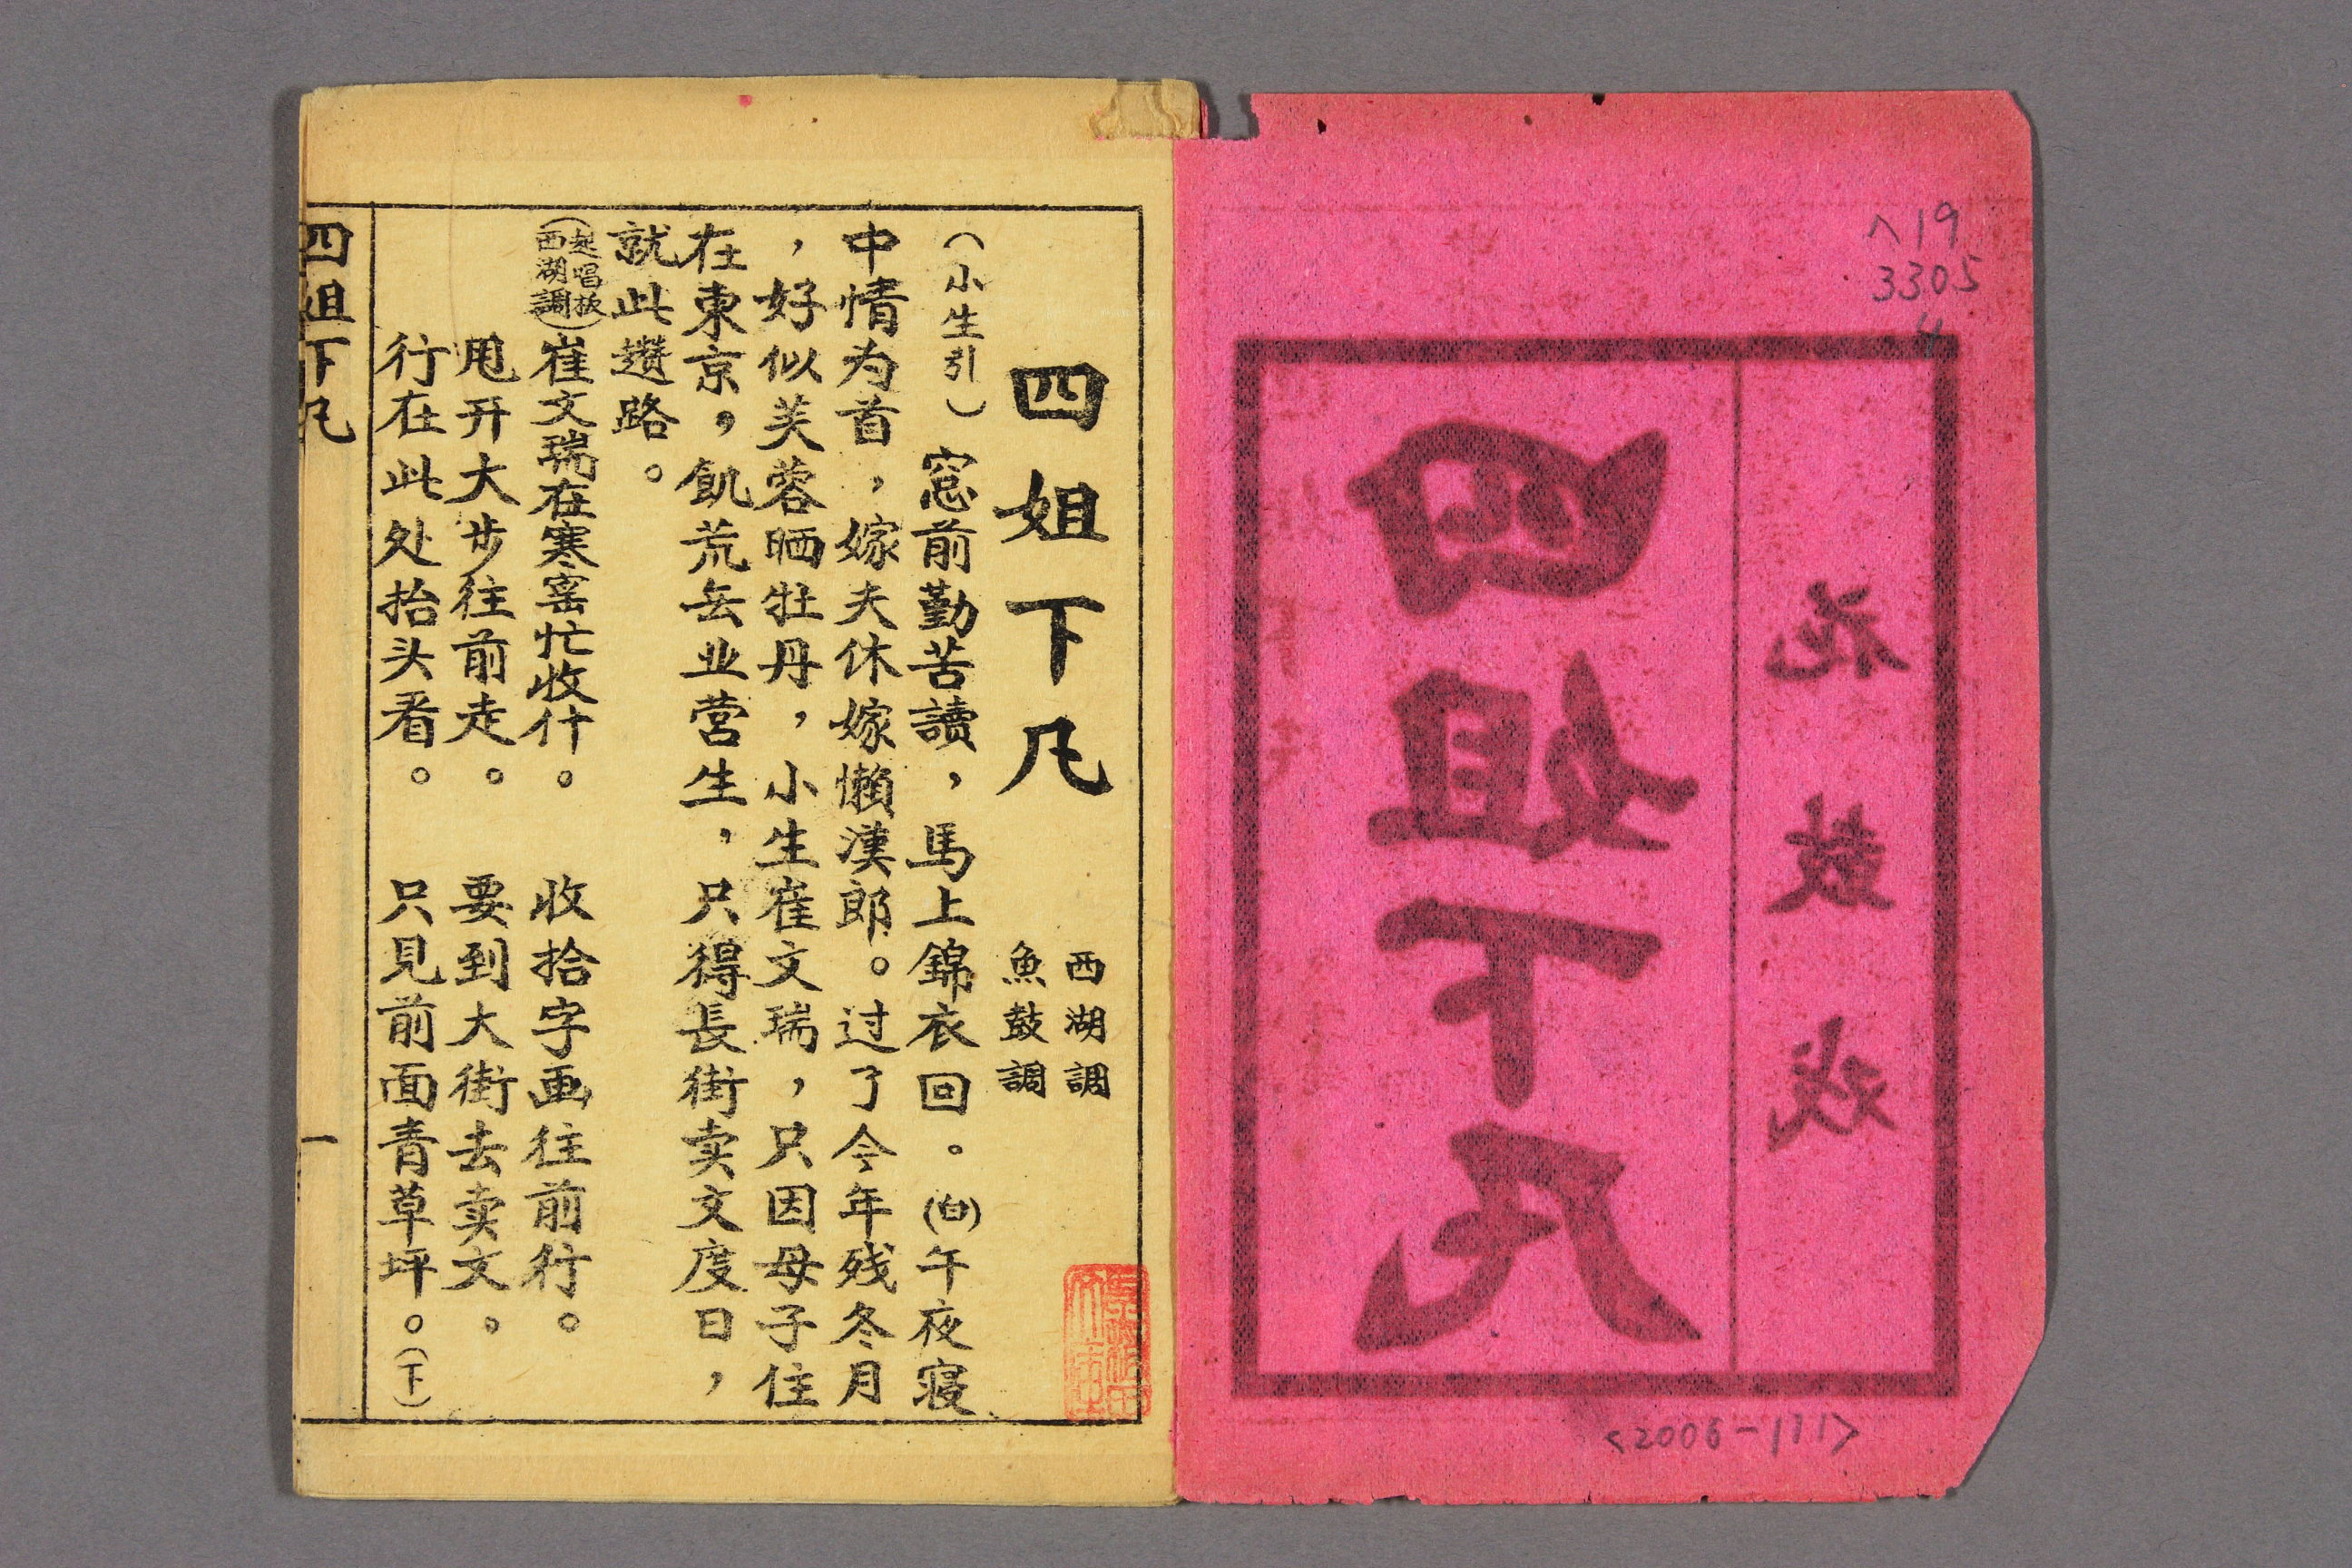 へ19
3305
4
花鼓戏
四姐下凡
<2006-111>
四姐下凡
西湖調
魚鼓調
（小生引）窓前勤苦讀，馬上錦衣回。(白)午夜寝
中情为首，嫁夫休嫁懶漢郎。过了今年残冬月
，好似芙蓉晒牡丹，小生崔文瑞，只因母子住
在東京，飢荒无业营生，只得長街卖文度日，
就此趲路。
（起唱放
西湖調）崔文瑞在寒窰忙收什。 收拾字画往前行。
甩开大步往前走。 要到大街去卖文。
行在此处抬头看。 只見前面青草坪。（下）
四姐下凡
一